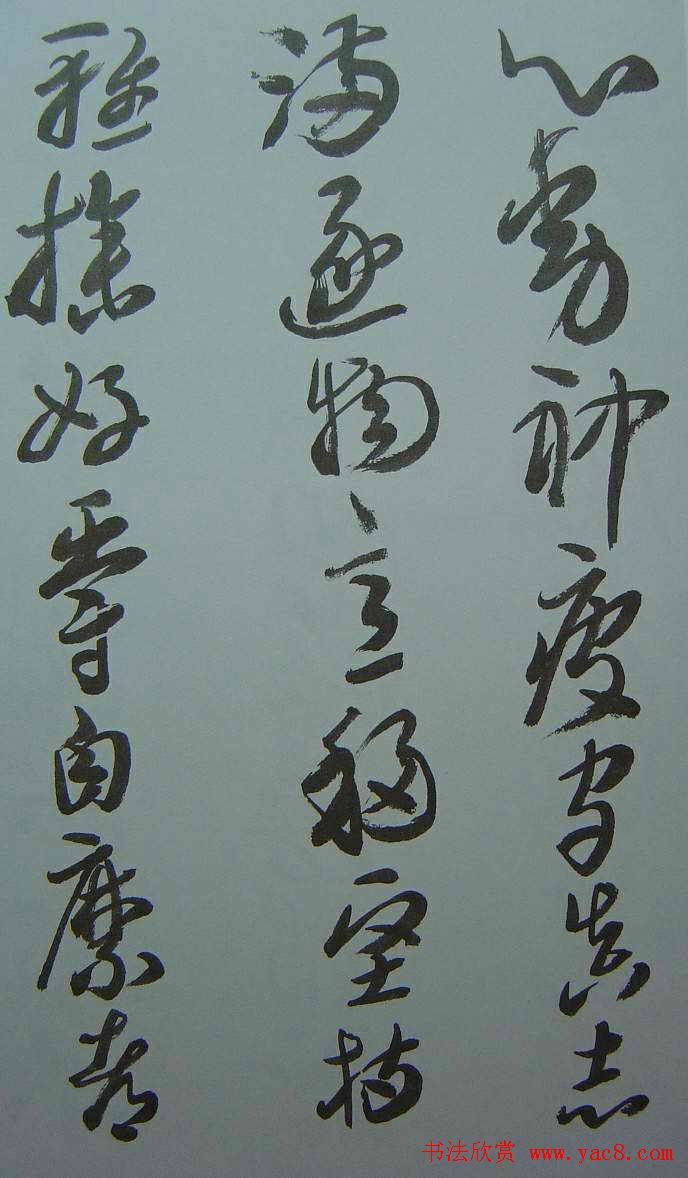 心動神疲守真志
滿逐物意移堅持
雅操好爵自縻都
书法欣赏 www.yac8.com